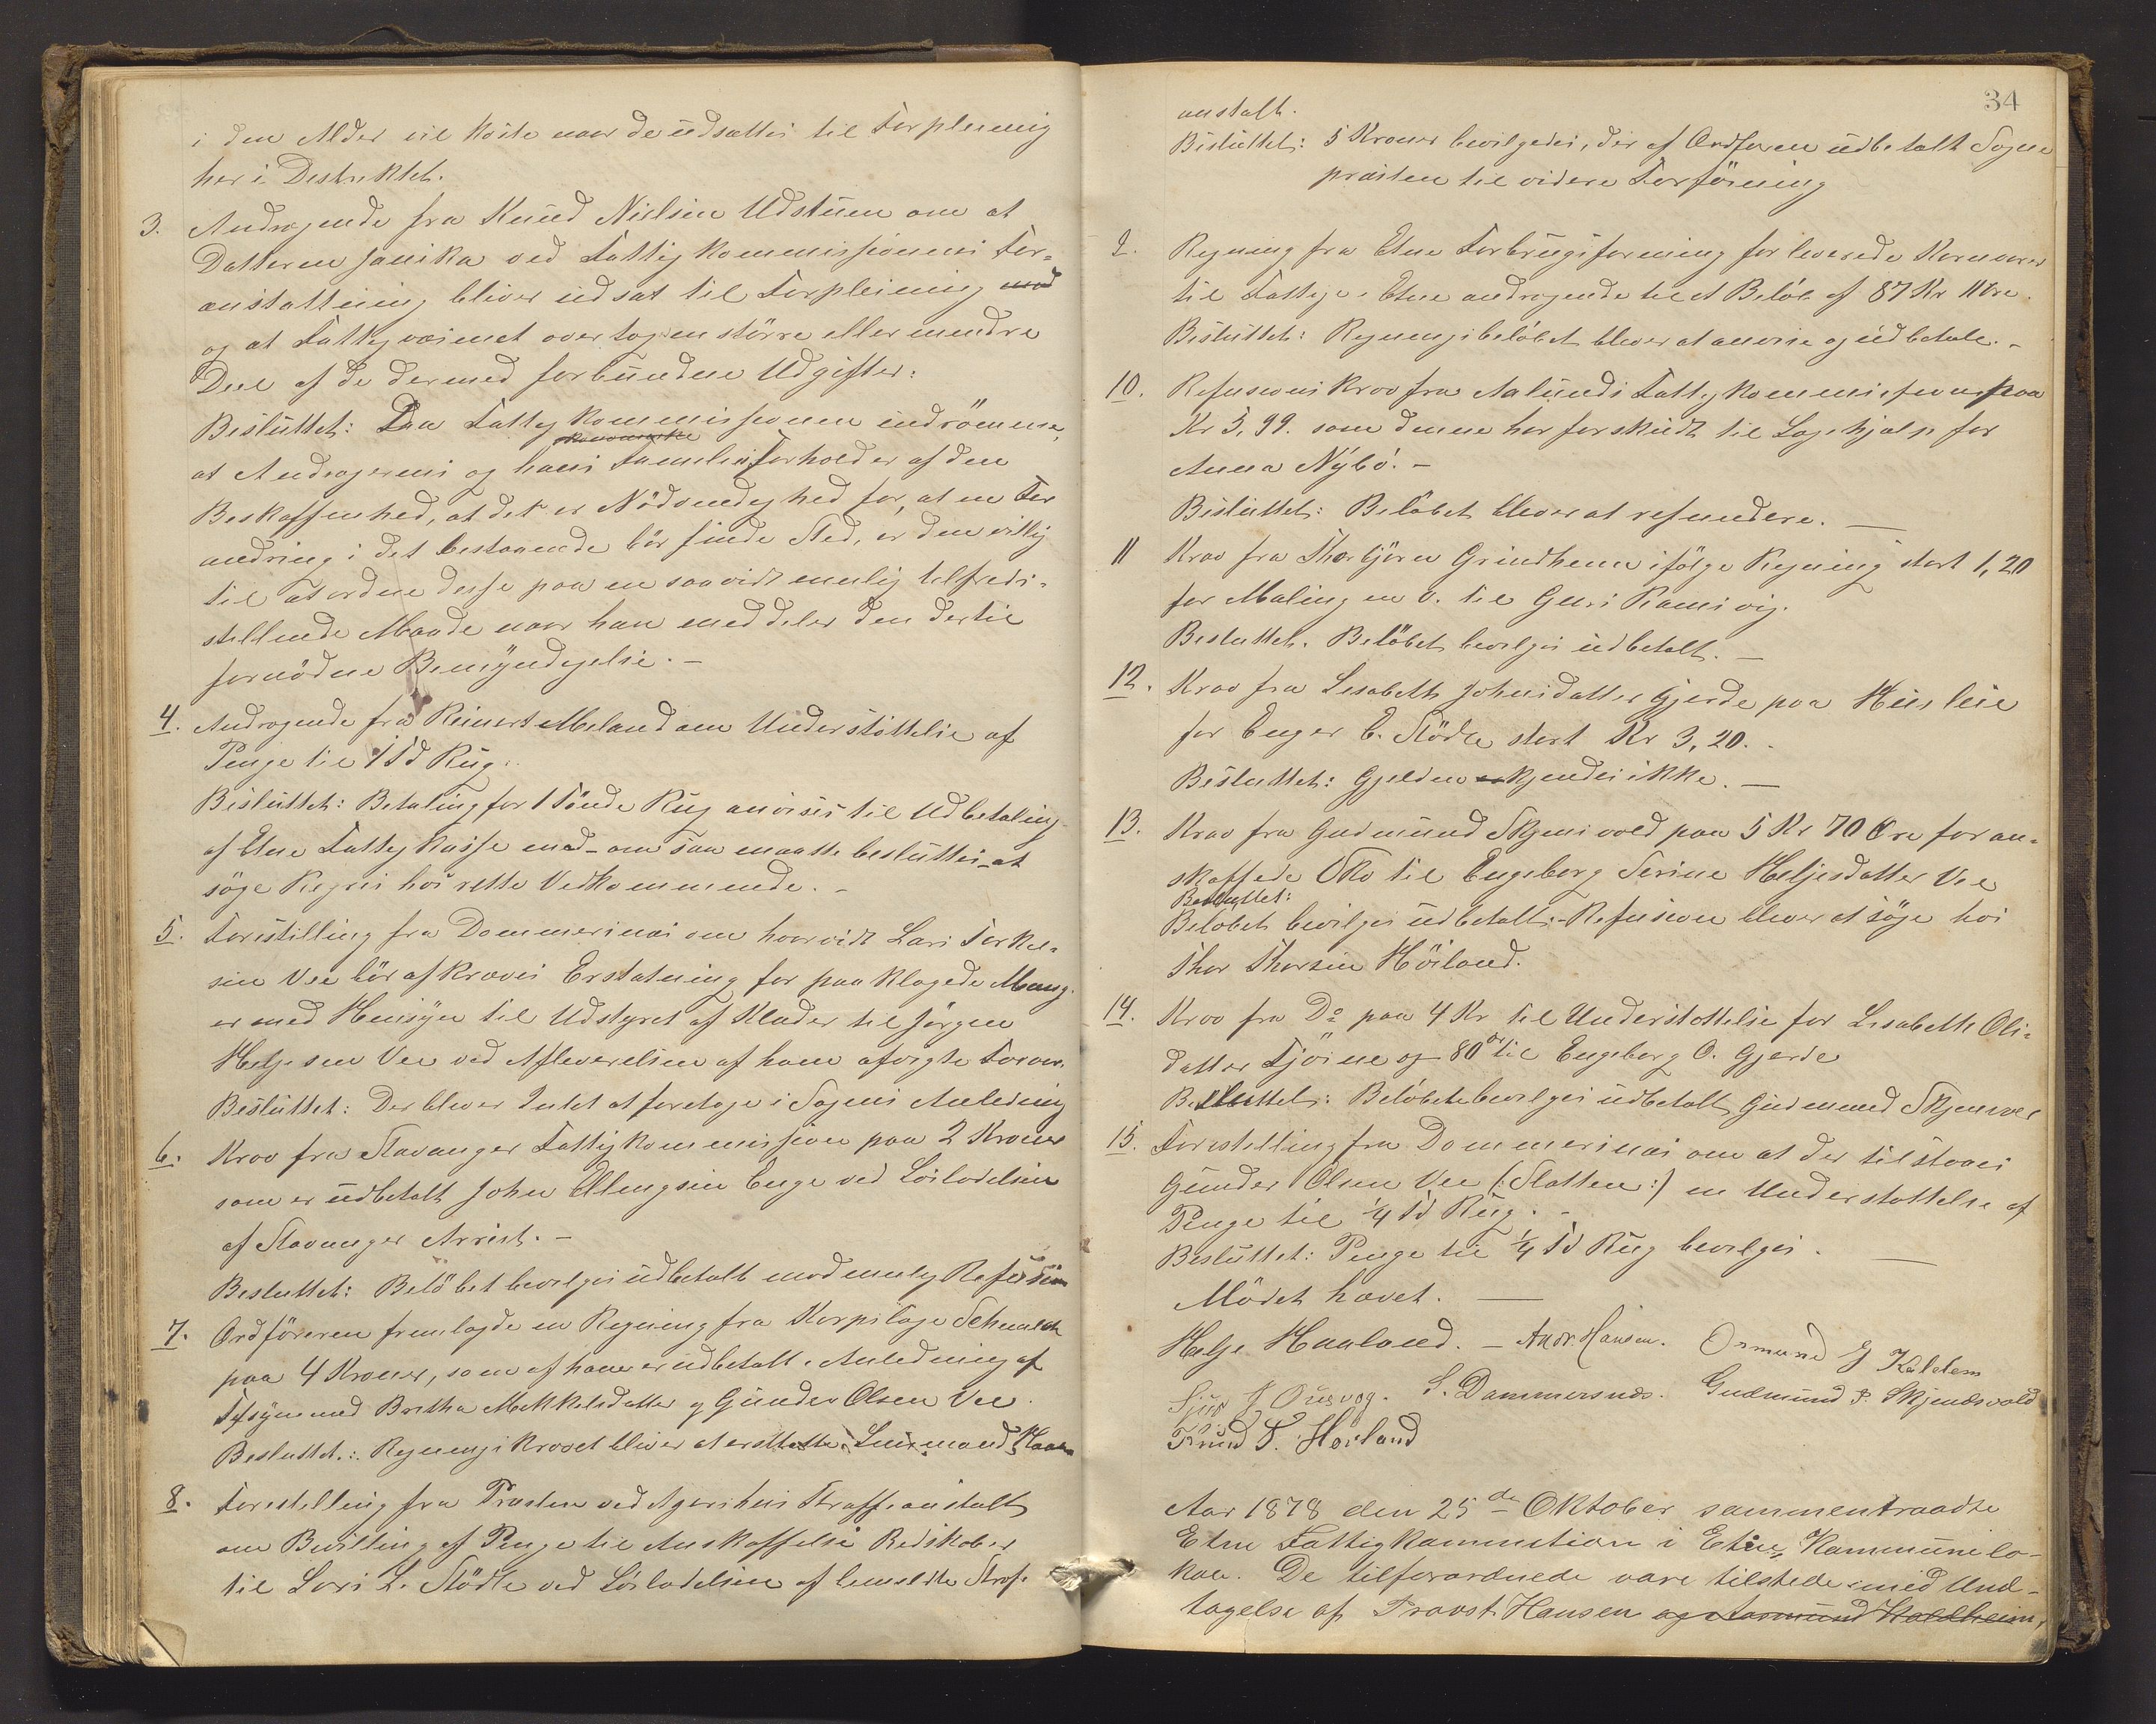 i den Alder vil koste naar de udsættes til Forpleining
her i Destriktet.
3. Andragende fra Knud Nielsen Udstuen om at
Datteren Janika ved Fattigkommissionens For-
anstaltning bliver udsat til Forpleining med
og at Fattigvæsenet overtager en større eller mendre
Deel af de dermed forbundne Udgifter:
Besluttet: Daa Fattigkommissionen indrömmer,
økonomiske
at Andragerens og hans Familieforhold er af den
Beskaffenhed, at det er Nödvendeghed for, at en For
andring i det bestaaende bör finde Sted, er den villig
til at ordne desse paa en saavidt mulig tilfreds-
stillende Maade naar han meddeler den dertil
fornödne Bemÿndigelse. -
4. Andragende fra Reinert Meland om Understöttelse af
Penge til 1 Td Rug.
Besluttet: Betaling for 1 Tönde Rug anvises til Udbetaling
af Etne Fattigkasse med - om saa maatte besluttes - at
söge Regres hos rette Vedkommende. -
5. Forestilling fra Dommersnæs om hvorvidt Lars Torkel-
sen Vee bör afkræves Erstatning for paaklagede Mang-
er med Hensyn til Udstyret af Klæder til Jörgen
Helgesen Vee ved Afleverelsen af ham afvigte Foraar.
Besluttet: Der bliver Intet at foretage i Sagens Anledning
6. Krav fra Stavanger Fattigkommission paa 2 Kroner
som er udbetalt John Ellingsen Enge ved Löslatelsen
af Stavanger Arrest. -
Besluttet: Belöbet bevelges udbetalt mod mulig Refusion
7. Ordföreren fremlagde en Regning fra Korpslæge Schmelck
paa 4 Kroner, som af ham er udbetalt i Anledning af
Tilsÿn med Bretha Mekkelsdatter og Gunder Olsen Vee.
Besluttet: Regningskravet bliver at erstatte Lensmand Haaland
8. Forestelling fra Præsten ved Agershus Straffeanstalt
om Bevilling af Penge til Anskaffelse Redskaber
til Lars L. Stödle ved Löslatelsen af bemeldte Straf-
34
anstalt.
Besluttet: 5 Kroner bevilgedes, der af Ordföreren udbetalt Sogne
præsten til videre Forföining
9. Regning fra Etne Forbrugsforening for leverede Kornvarer
til Fattige i Etne andragende til et Belöb af 87 Kr 11 Öre.
Besluttet: Regningsbelöbet bliver at anvise og udbetale. -
10. Refusionskrav fra Aalesunds Fattigkommission paa
Kr 3,99. som denne har forskudt til Lægehjælp for
Anna Nÿbö. -
Besluttet: Belöbet bliver at refundere. -
11 Krav fra Thorbjörn Grindheim ifölge Regning stort 1,20
for Maling m v. til Guri Ramsvig.
Besluttet. Belöbet bevelges udbetalt. -
12. Krav fra Lesabeth Johnsdatter Gjerde paa Husleie
for Enger E. Stödle stort Kr 3,20. -
Besluttet: Gjelden kjendes ikke. -
13. Krav fra Gudmund Skjensvold paa 5 Kr 70 Öre for an-
skaffede Sko til Engeborg Serine Heljesdatter Vee
Besluttet:
Belöbet bevilges udbetalt. - Refusion bliver at söge hos
Thor Thorsen Höiland.
14. Krav fra Do paa 4 Kr til Understöttelse for Lesabeth Ols-
datter Tjösne og 80 Ör til Engeborg O. Gjerde
Besluttet: Belöbet bevelges udbetalt Gudmund Skjensvol
15. Forestelling fra Dommersnæs om at der tilstaaes
Gunder Olsen Vee (: Slotten :) en Understøttelse af
Penge til 1/4 Td Rug. -
Besluttet: Penge til 1/4 Td Rug bevelges. -
Mödet hævet. -
Helje Haaland. - Andr. Hansen. Ormund J Kaldem
Sjur J Ousvog. S. Dammersnæs. Gudmund P. Skjendsvold
Knud T. Höiland
Aar 1878 den 25de Oktober sammentraadte
Etne Fattigkommition i Etne Kommunelo-
kale. De tilforordnede vare tilstede med Und-
tagelse af Provst Hansen og Aasmund Kaldheim,